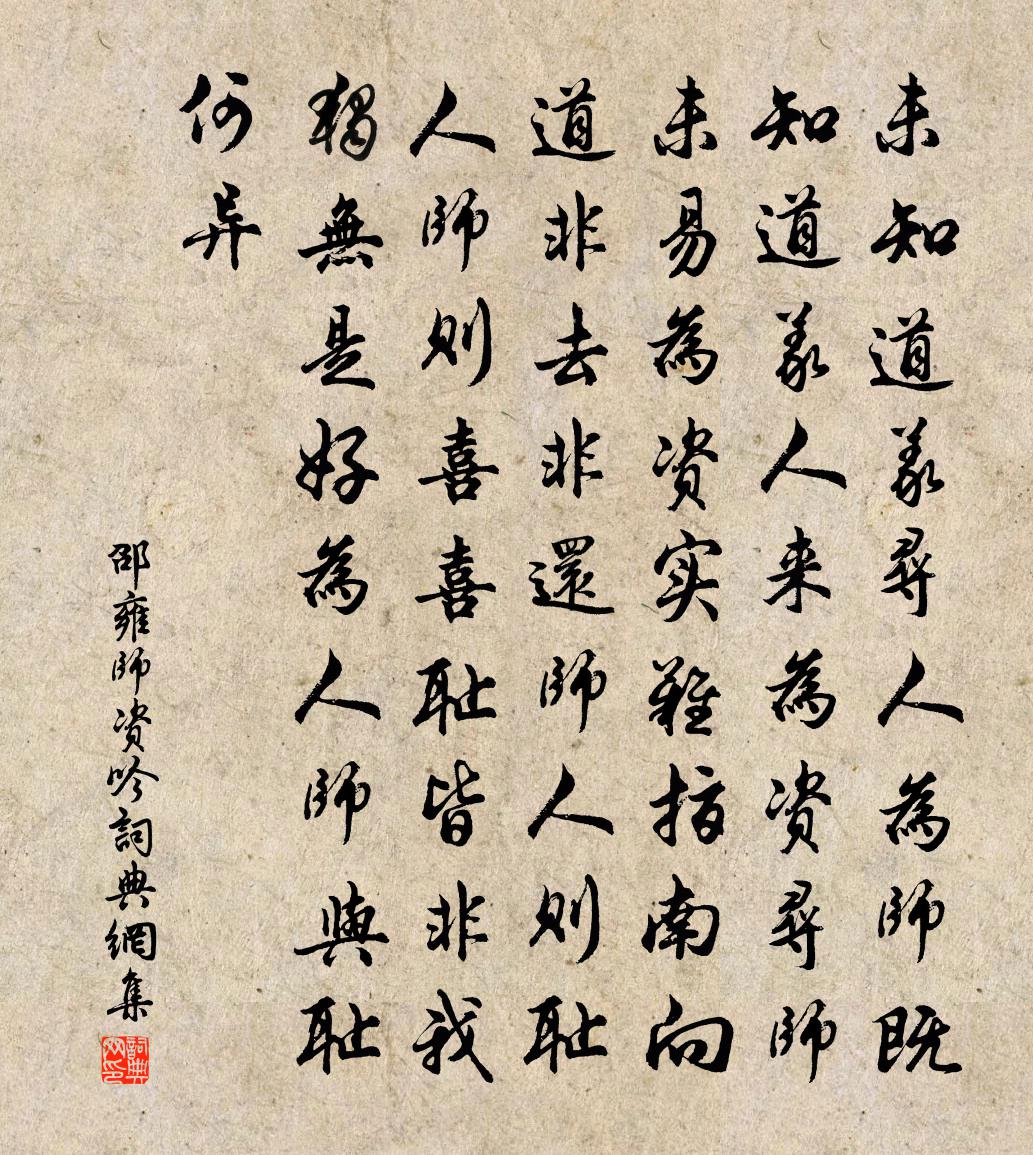 未知道義尋人為師既
知道義人来為資尋師
未易為資实難指南向
道非去非還師人則耻
人師則喜喜耻皆非我
獨無是好為人師與耻
何异
邵雍師資吟詞典網集
詞典网印